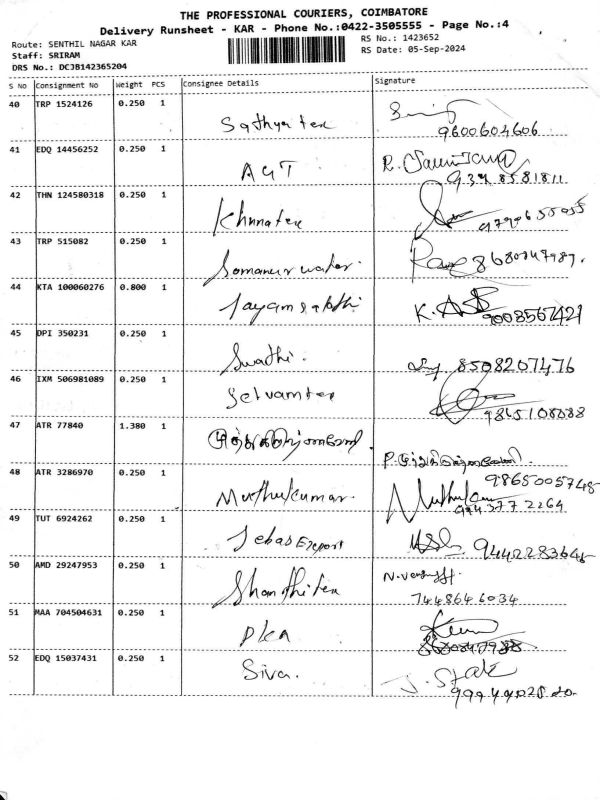 THE PROFESSIONAL COURIERS, COIMBATORE
Delivery Runsheet - KAR - Phone No.:0422-3505555 - Page No.:4
Route: SENTHIL NAGAR KAR
RS No.: 1423652
Staff: SRIRAM
RS Date: 05-Sep-2024
DRS No.: DCJB142365204
S No Consignment No Weight PCS Consignee Details Signature
40 TRP 1524126 0.250 1
Sathya tex 9600604606
41 EDQ 14456252 0.250 1
AGT
42 THN 124580318 0.250 1
43 TRP 515082 0.250 1
Somanur water.
44 KTA 100060276 0.800 1
Jayam sakthi K.
45 DPI 350231 0.250 1
Swathi. 8508207476
46 IXM 506981089 0.250 1
Selvamtex
47 ATR 77840 1.380 1
48 ATR 3286970 0.250 1
9865005748
Muthukumar. Muthukumar
9943772264
49 TUT 6924262 0.250 1
Jebas Export
50 AMD 29247953 0.250 1
Shanthi tex
7448646034
51 MAA 704504631 0.250 1
52 EDQ 15037431 0.250 1
Siva.